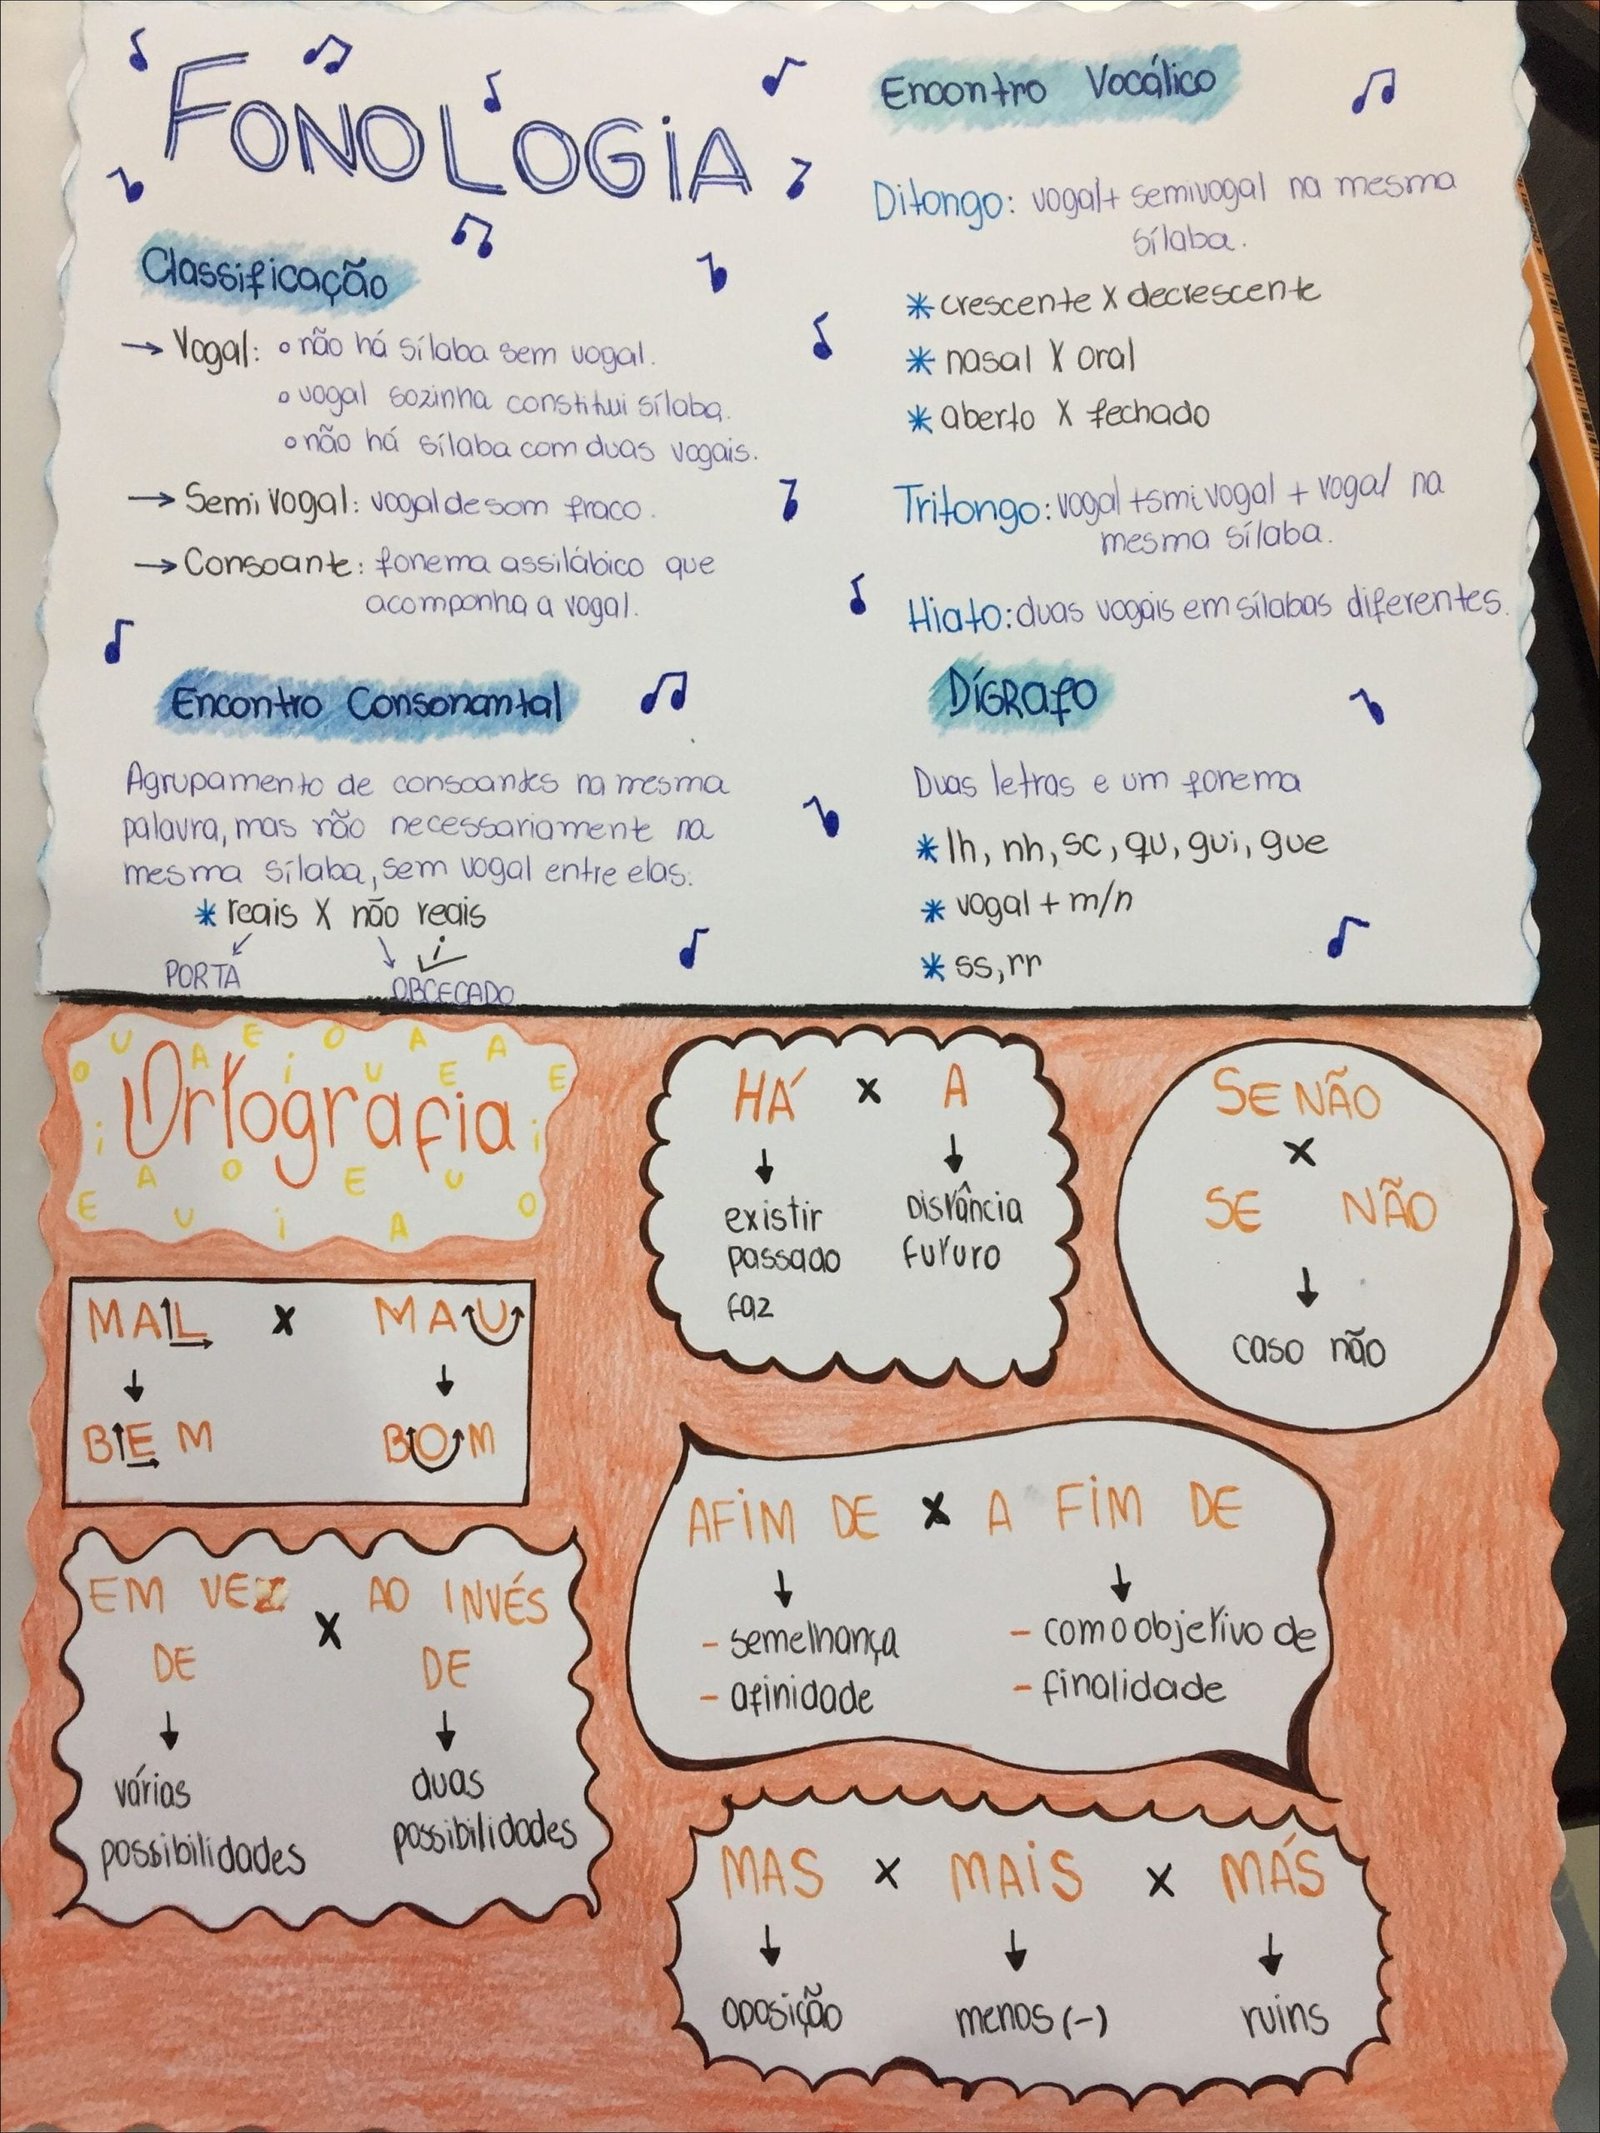 FONOLOGiA
Classificação
→ Vogal: ∘ não há sílaba sem vogal.
∘ vogal sozinha constitui sílaba.
∘ não há sílaba com duas vogais.
→ Semi vogal: vogal de som fraco.
→ Consoante: fonema assilábico que
acompanha a vogal.
Encontro Consonantal
Agrupamento de consoantes na mesma
palavra, mas não necessariamente na
mesma sílaba, sem vogal entre elas.
* reais X não reais
PORTA
i
OBCECADO
Encontro Vocálico
Ditongo: vogal+ semivogal na mesma
sílaba.
* crescente X decrescente
* nasal X oral
* aberto X fechado
Tritongo: vogal +smivogal + vogal na
mesma sílaba.
Hiato: duas vogais em sílabas diferentes.
DÍGRAfO
Duas letras e um fonema
* lh, nh, sc, qu, gui, gue
* vogal + m/n
* ss, rr
O U A E i O U A E A E
Ortografia
i E A U O i E A U O i
MAL X MAU
↓ ↓
BEM BOM
EM VEZ X AO INVÉS
DE DE
↓ ↓
várias duas
possibilidades possibilidades
HÁ X A
↓ ↓
existir Distância
passado futuro
faz
SENÃO
X
SE NÃO
↓
caso não
AFiM DE X A FiM DE
↓ ↓
- semelhança - como objetivo de
- afinidade - finalidade
MAS X MAiS X MÁS
↓ ↓ ↓
oposição menos (-) ruins